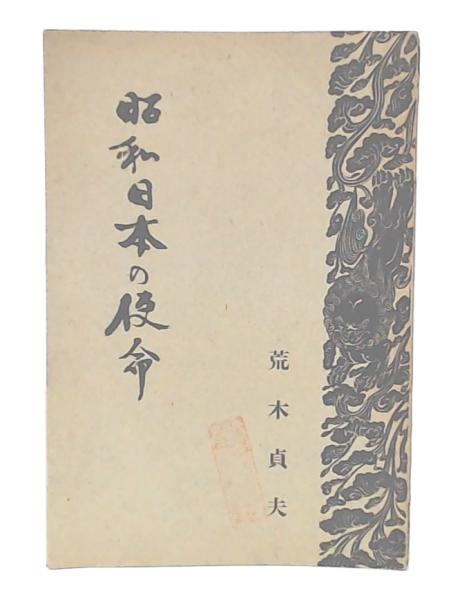 昭和日本の使命
荒木貞夫